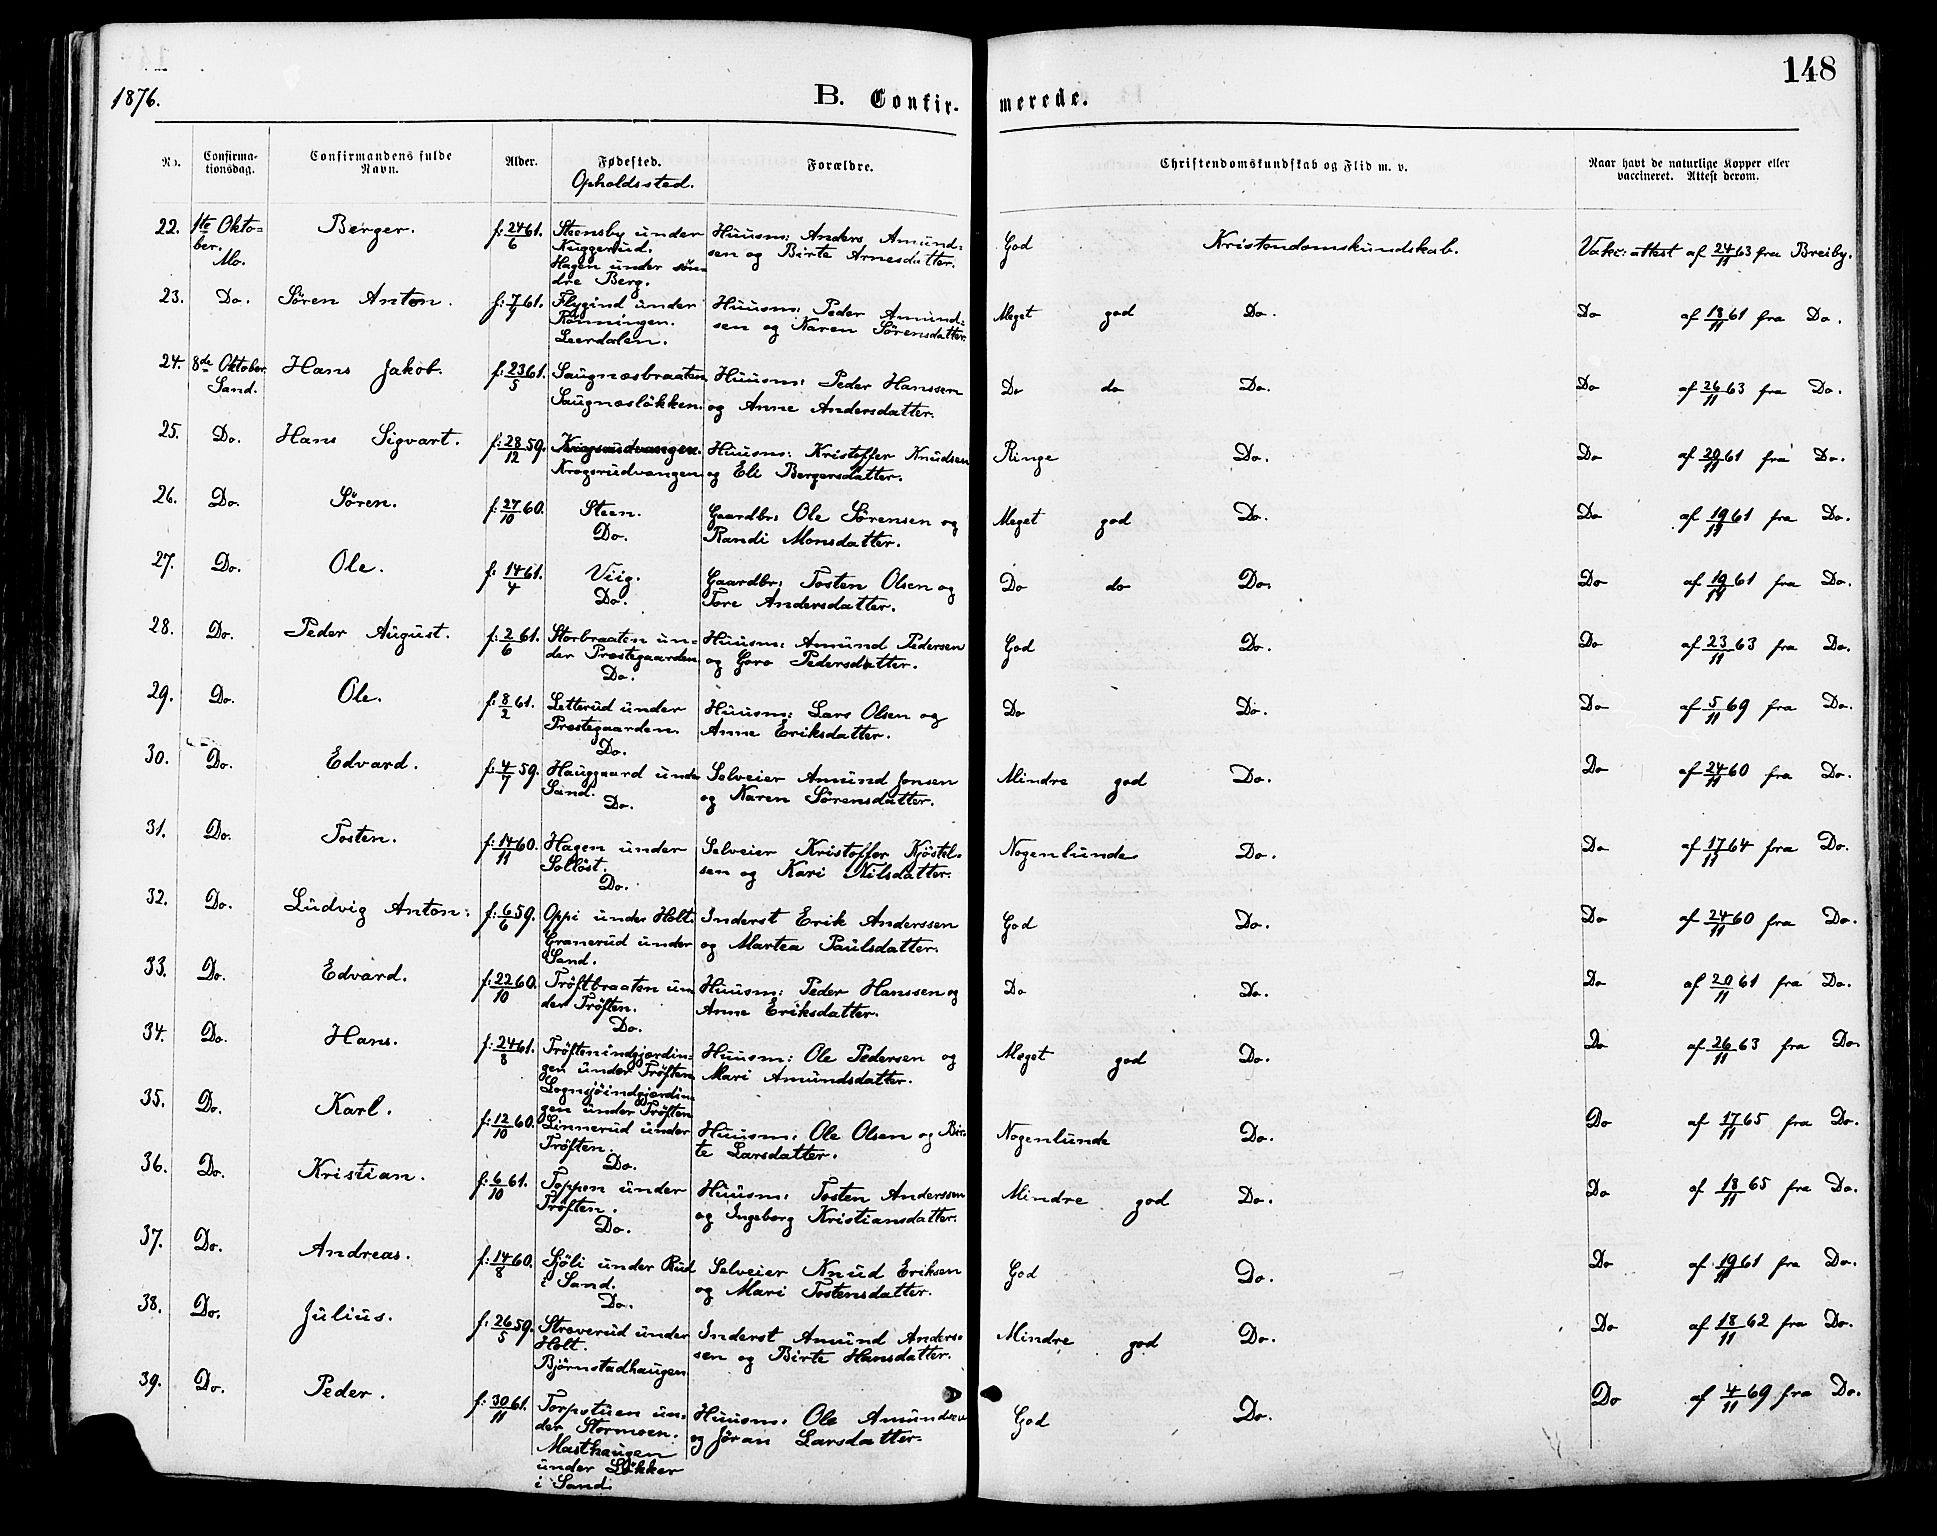 148
1876.
B. Confir- merede.
No. Confirma- Confirmandens fulde Alder. Fødested. Forældre. Christendomskundskab og Flid m. v. Naar havt de naturlige Kopper eller
tionsdag. Navn. Opholdssted. vaccineret. Attest derom.
22. 1ste Okto- Berger. f: 24/6 61. Steensby under Huusm: Anders Amund- God Kristendomskundskab. Vakc: attest af 24/11 63 fra Breiby.
ber. Nuggerud. sen og Birte Arnesdatter.
Mo. Hagen under søn-
dre Berg.
23. Do. Sören Anton. f: 7/7 61. Flygind under Huusm: Peder Amund- Meget god Do. Do af 18/11 61 fra Do.
Rönningen. sen og Karen Sörensdatter.
Leerdalen.
24. 8de Oktober Hans Jakob. f: 23/5 61. Saugnæsbraaten Huusm: Peder Hanssen Do do Do. Do af 26/11 63 fra Do.
Sand. Saugnæslökken. og Anne Andersdatter.
25. Do. Hans Sigvart. f: 28/12 59. Krogsrudvangen. Huusm: Kristoffer Knudsen Ringe Do. Do af 20/11 61 fra Do.
Krogsrudvangen og Eli Bergersdatter.
26. Do. Sören. f: 27/10 60. Steen. Gaardbr: Ole Sörensen og Meget god Do. Do af 19/11 61 fra Do.
Do. Randi Monsdatter.
27. Do. Ole. f: 14/4 61. Viig. Gaardbr: Tosten Olsen og Do do Do. Do af 19/11 61 fra Do.
Do. Tore Andersdatter.
28. Do. Peder August. f: 2/6 61. Storbraaten un- Huusm: Amund Pedersen God Do. Do af 23/11 63 fra Do.
der Præstegaarden og Goro Pedersdatter.
Do.
29. Do. Ole. f: 8/2 61. Letterud under Huusm: Lars Olsen og Do Do. Do af 5/11 69 fra Do.
Præstegaarden. Anne Eriksdatter.
Do.
30. Do. Edvard. f: 4/7 59. Hauggaard under Selveier Amund Jonsen Mindre god Do. Do af 24/11 60 fra Do.
Sand. og Karen Sörensdatter.
Do.
31. Do. Tosten. f: 14/11 60. Hagen under Selveier Kristoffer Kjöstel- Nogenlunde Do. Do af 17/11 64 fra Do.
Solløst. sen og Kari Nilsdatter.
Do.
32. Do. Ludvig Anton. f: 6/6 59. Oppi under Holt. Inderst Erik Anderssen God Do. Do af 24/11 60 fra Do.
Granerud under og Martea Paulsdatter.
Sand.
33. Do. Edvard. f: 22/10 60. Tröftbraaten un- Huusm: Peder Hanssen og Do Do. Do af 20/11 61 fra Do.
der Tröften. Anne Eriksdatter.
Do.
34. Do. Hans. f: 24/8 61. Tröftenindgjærdin- Huusm: Ole Pedersen og Meget god Do. Do af 26/11 63 fra Do.
gen under Tröften. Mari Amundsdatter.
Lognsjöindgjærdin-
gen under Tröften
35. Do. Karl. f: 12/10 60. Linnerud under Huusm: Ole Olsen og Bir- Nogenlunde Do. Do af 17/11 65 fra Do.
Tröften. te Larsdatter.
Do.
36. Do. Kristian. f: 6/10 61. Toppen under Huusm: Tosten Anderssen Mindre god Do. Do af 18/11 65 fra Do.
Tröften. og Ingeborg Kristiansdatter.
Do.
37. Do. Andreas. f: 14/8 60. Sjöli under Rud Selveier Knud Eriksen God Do. Do af 19/11 61 fra Do.
i Sand. og Mari Tostensdatter.
Do.
38. Do. Julius. f: 26/5 59. Streverud under Inderst Amund Anders- Mindre god Do. Do af 18/11 62 fra Do.
Holt. sen og Birte Hansdatter.
Björnstadhaugen
39. Do. Peder. f: 30/11 61. Torpstuen un- Huusm: Ole Amundsen God Do. Do af 4/11 69 fra Do.
der Stormoen. og Jöran Larsdatter.
Masthaugen
under Løkker
i Sand.